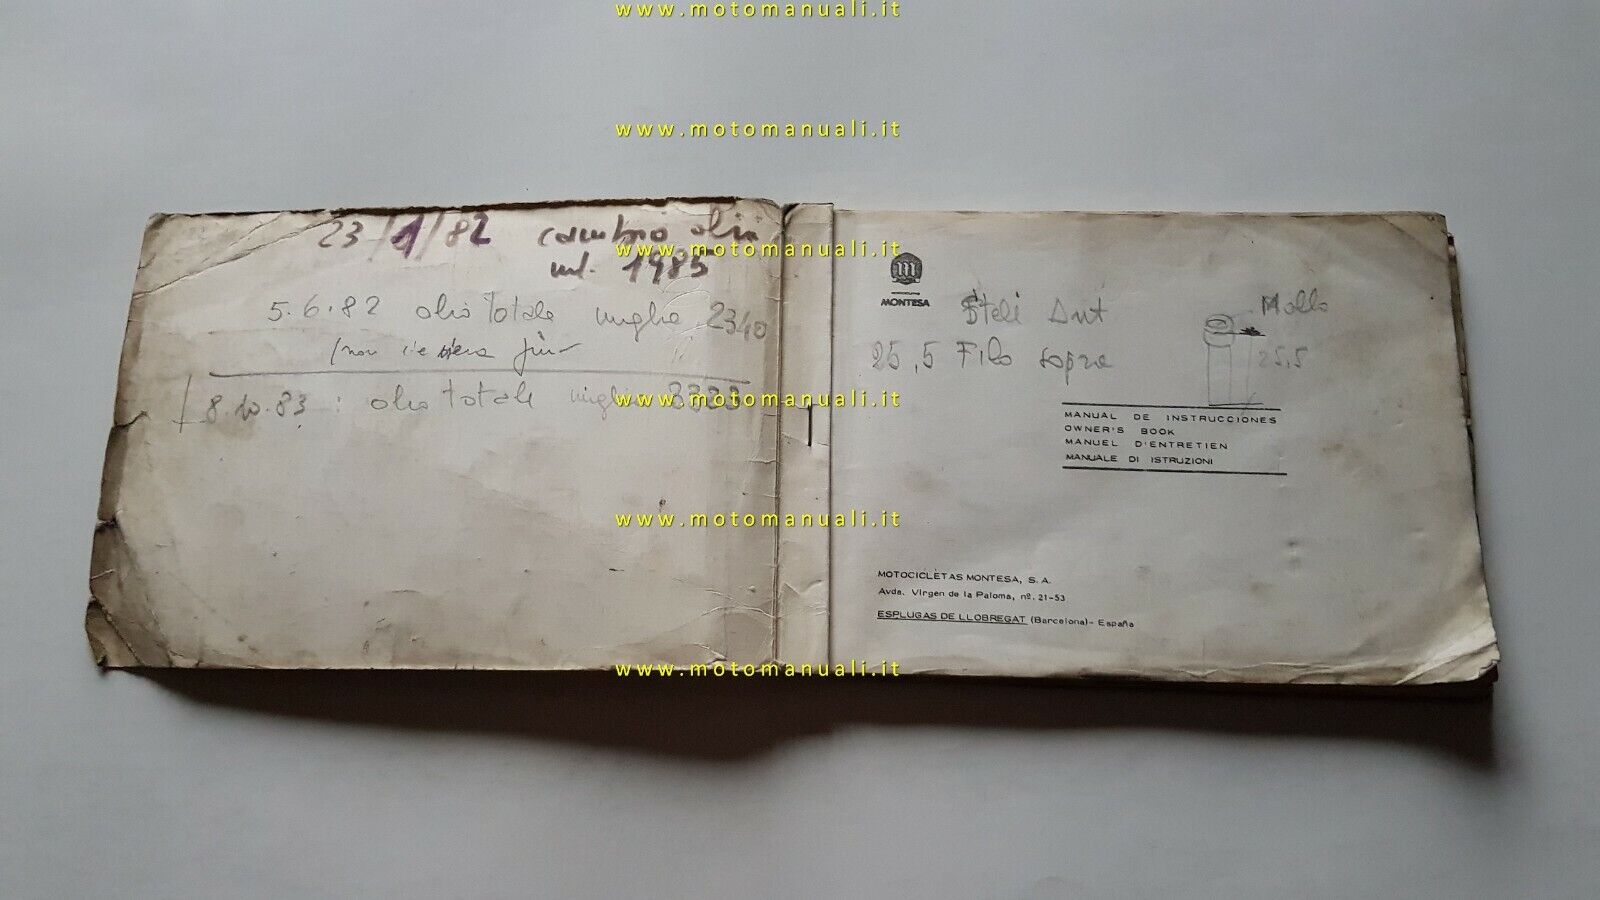 www.motomanuali.it
www.motomanuali.it
23/1/82 cambio olii
ml. 1985
www.motomanuali.it
5.6.82 olio totale miglia 2340
(non
8.10.83: olio totale miglia
www.motomanuali.it
m
MONTESA
Steli Ant
Molla
25,5 Filo sopra
25,5
MANUAL DE INSTRUCCIONES
OWNER'S BOOK
MANUEL D'ENTRETIEN
MANUALE DI ISTRUZIONI
www.motomanuali.it
MOTOCICLETAS MONTESA, S. A.
Avda. Virgen de la Paloma, nº. 21-53
ESPLUGAS DE LLOBREGAT (Barcelona)- España
www.motomanuali.it